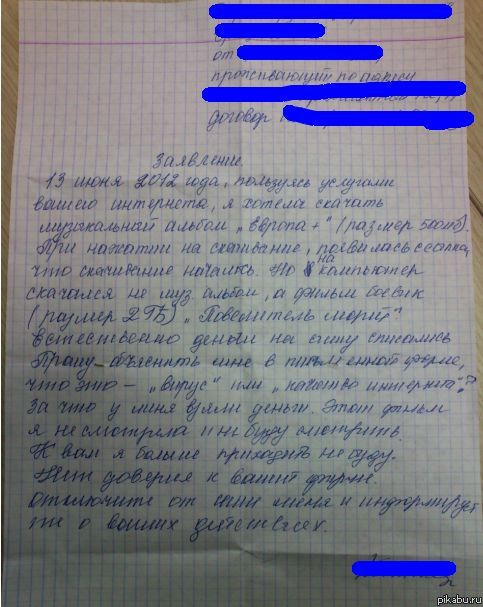 от
проживающий по адресу
договор
Заявление.
13 июня 2012 года, пользуясь услугами
вашего интернета, я хотела скачать
музыкальный альбом „Европа +" (размер 500мб).
При нажатии на скачивание, появилась ссылка,
что скачивание началось. Но на компьютер
скачался не муз. альбом, а фильм боевик
(размер 2 ГБ) „Повелитель морей"
естественно деньги на счету списались
Прошу объяснить мне в письменной форме,
что это – „вирус" или „качество интернета"?
За что у меня взяли деньги. Этот фильм
я не смотрела и не буду смотреть.
К вам я больше приходить не буду.
Нет доверия к вашей фирме.
отключите от сети меня и информируйте
те о ваших действиях.
pikabu.ru